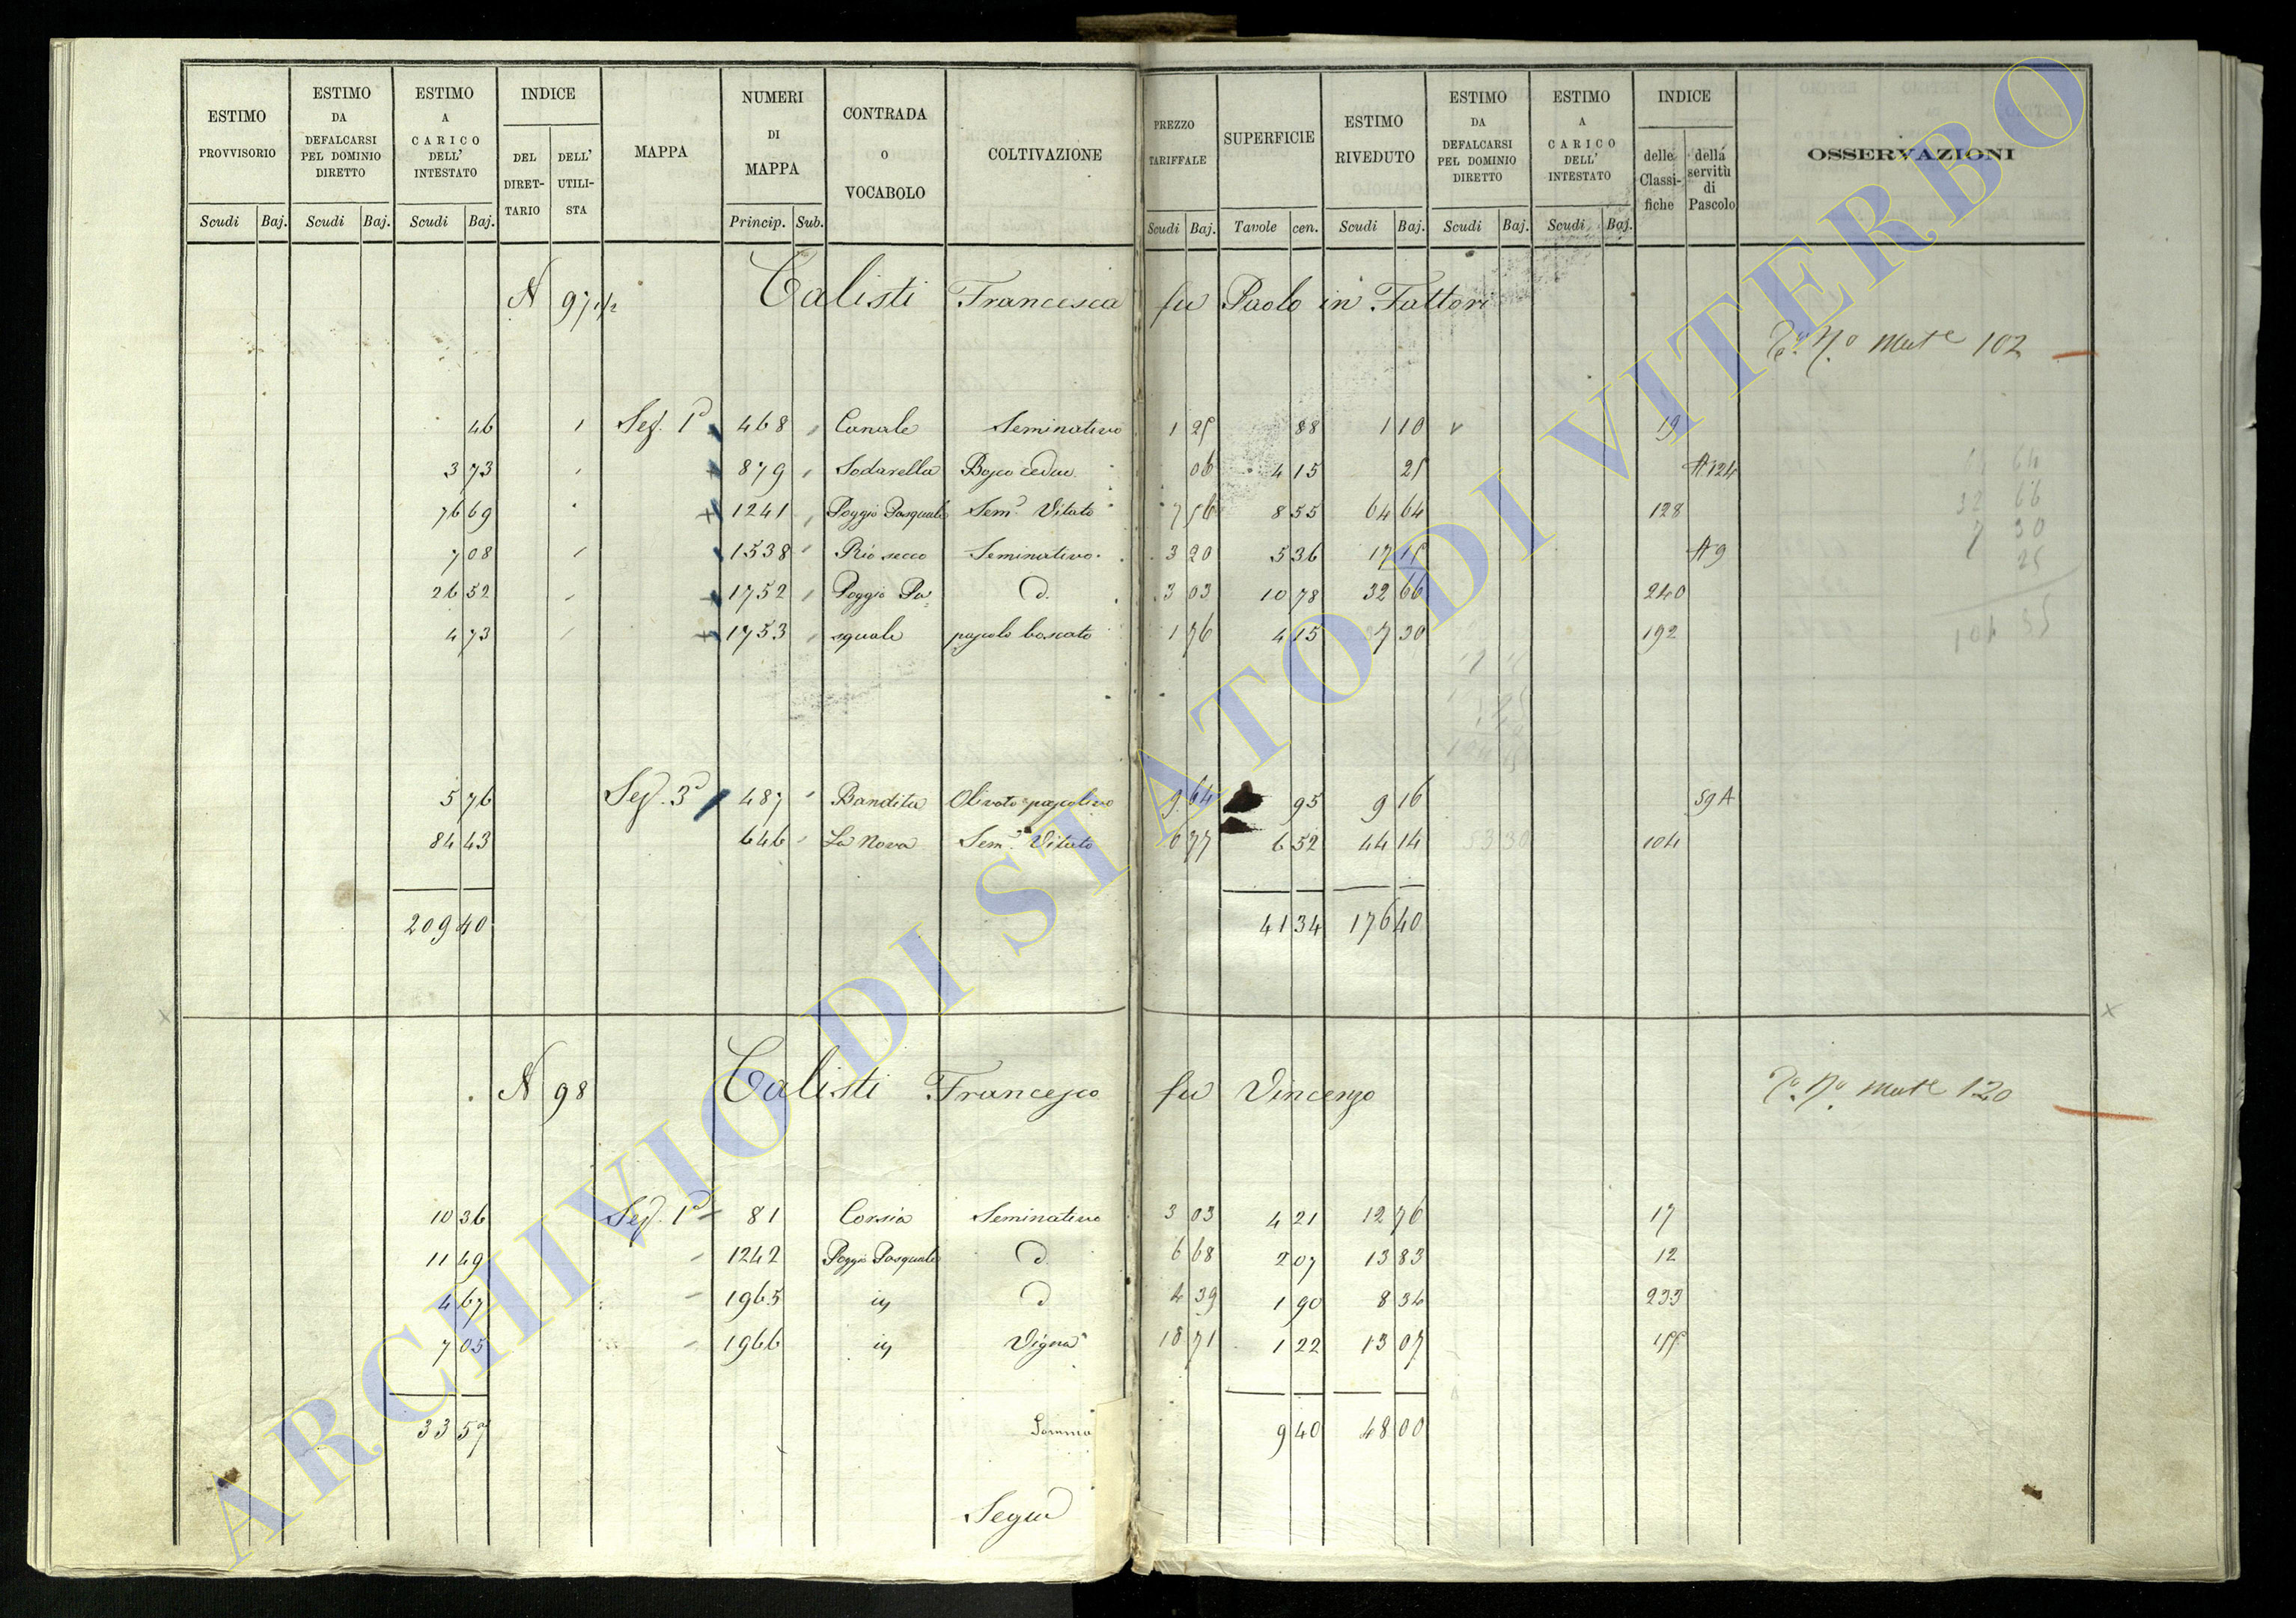 ESTIMO PROVVISORIO | ESTIMO DA DEFALCARSI PEL DOMINIO DIRETTO | ESTIMO A CARICO DELL' INTESTATO | INDICE | MAPPA | NUMERI DI MAPPA | CONTRADA O VOCABOLO | COLTIVAZIONE | PREZZO TARIFFALE | SUPERFICIE | ESTIMO RIVEDUTO | ESTIMO DA DEFALCARSI PEL DOMINIO DIRETTO | ESTIMO A CARICO DELL' INTESTATO | INDICE | OSSERVAZIONI
DEL DIRET-TARIO | DELL' UTILI-STA | delle Classi-fiche | della servitù di Pascolo
Scudi Baj. | Scudi Baj. | Scudi Baj. | Princip. Sub. | Scudi Baj. | Tavole cen. | Scudi Baj. | Scudi Baj. | Scudi Baj.
N 97 1/2 Calisti Francesca fu Paolo in Fattori
102
46 | Sez. 1ª | 468 | Canale | Seminativo | 1 25 | 88 | 1 10 | 19
3 73 | 879 | Sodarella | Bosco ceduo | 06 | 4 15 | 25 | A 124
76 69 | 1241 | Poggio Pasquale | Sem.º Vitato | 7 56 | 8 55 | 64 64 | 128
7 08 | 1538 | Rio secco | Seminativo | 3 20 | 5 36 | 17 15 | A 9
26 52 | 1752 | Poggio Pa= | d. | 3 03 | 10 78 | 32 66 | 240
4 73 | 1753 | squale | pascolo boscato | 1 76 | 4 15 | 7 30 | 192
64
32 66
7 30
25
104 85
5 76 | Sez. 3ª | 487 | Bandita | Olivato pascolivo | 9 64 | 95 | 9 16 | 59 A
84 43 | 646 | La Nova | Sem.º Vitato | 6 77 | 6 52 | 44 14 | 104
209 40 | 41 34 | 176 40
N 98 Calisti Francesco fu Vincenzo
120
10 36 | Sez. 1ª | 81 | Corsia | Seminativo | 3 03 | 4 21 | 12 76 | 17
11 49 | 1242 | Poggio Pasquale | d. | 6 68 | 2 07 | 13 83 | 12
4 67 | 1965 | iy | d | 4 39 | 1 90 | 8 34 | 233
7 05 | 1966 | iy | Vigna | 10 71 | 1 22 | 13 07 | 155
33 57 | Somma | 9 40 | 48 00
Segue
ARCHIVIO DI STATO DI VITERBO